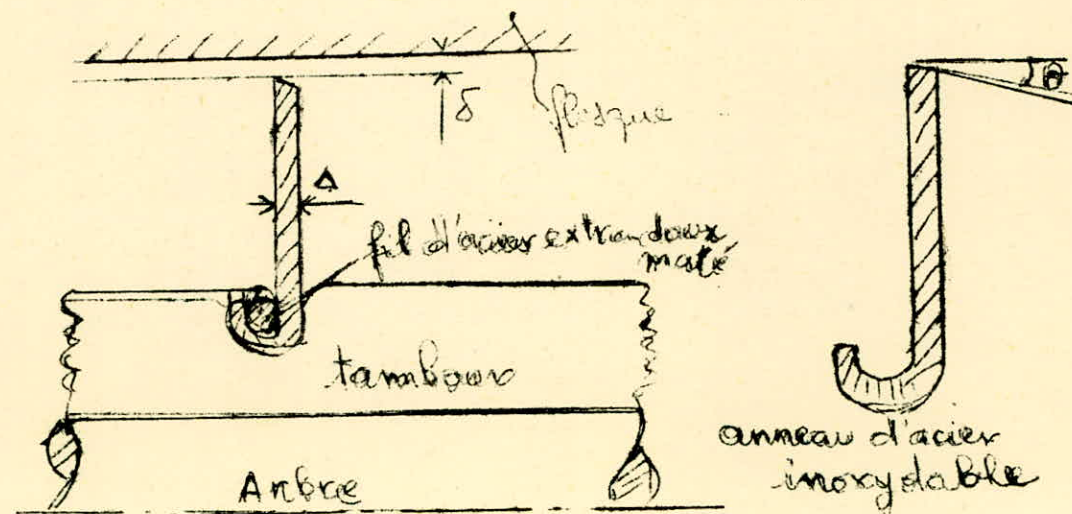 δ
flasque
θ
Δ
fil d'acier extra-doux
maté
tambour
anneau d'acier
inoxydable
Arbre